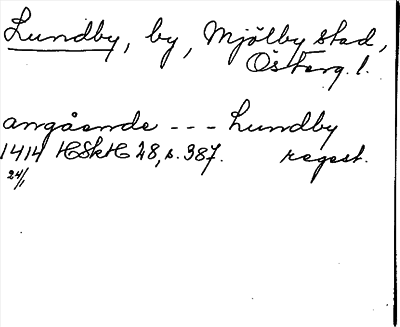 Lundby, by, Mjölby stad,
Österg. l.
angående --- Lundby
1414 HSkH 28, s. 387. regest.
24/1